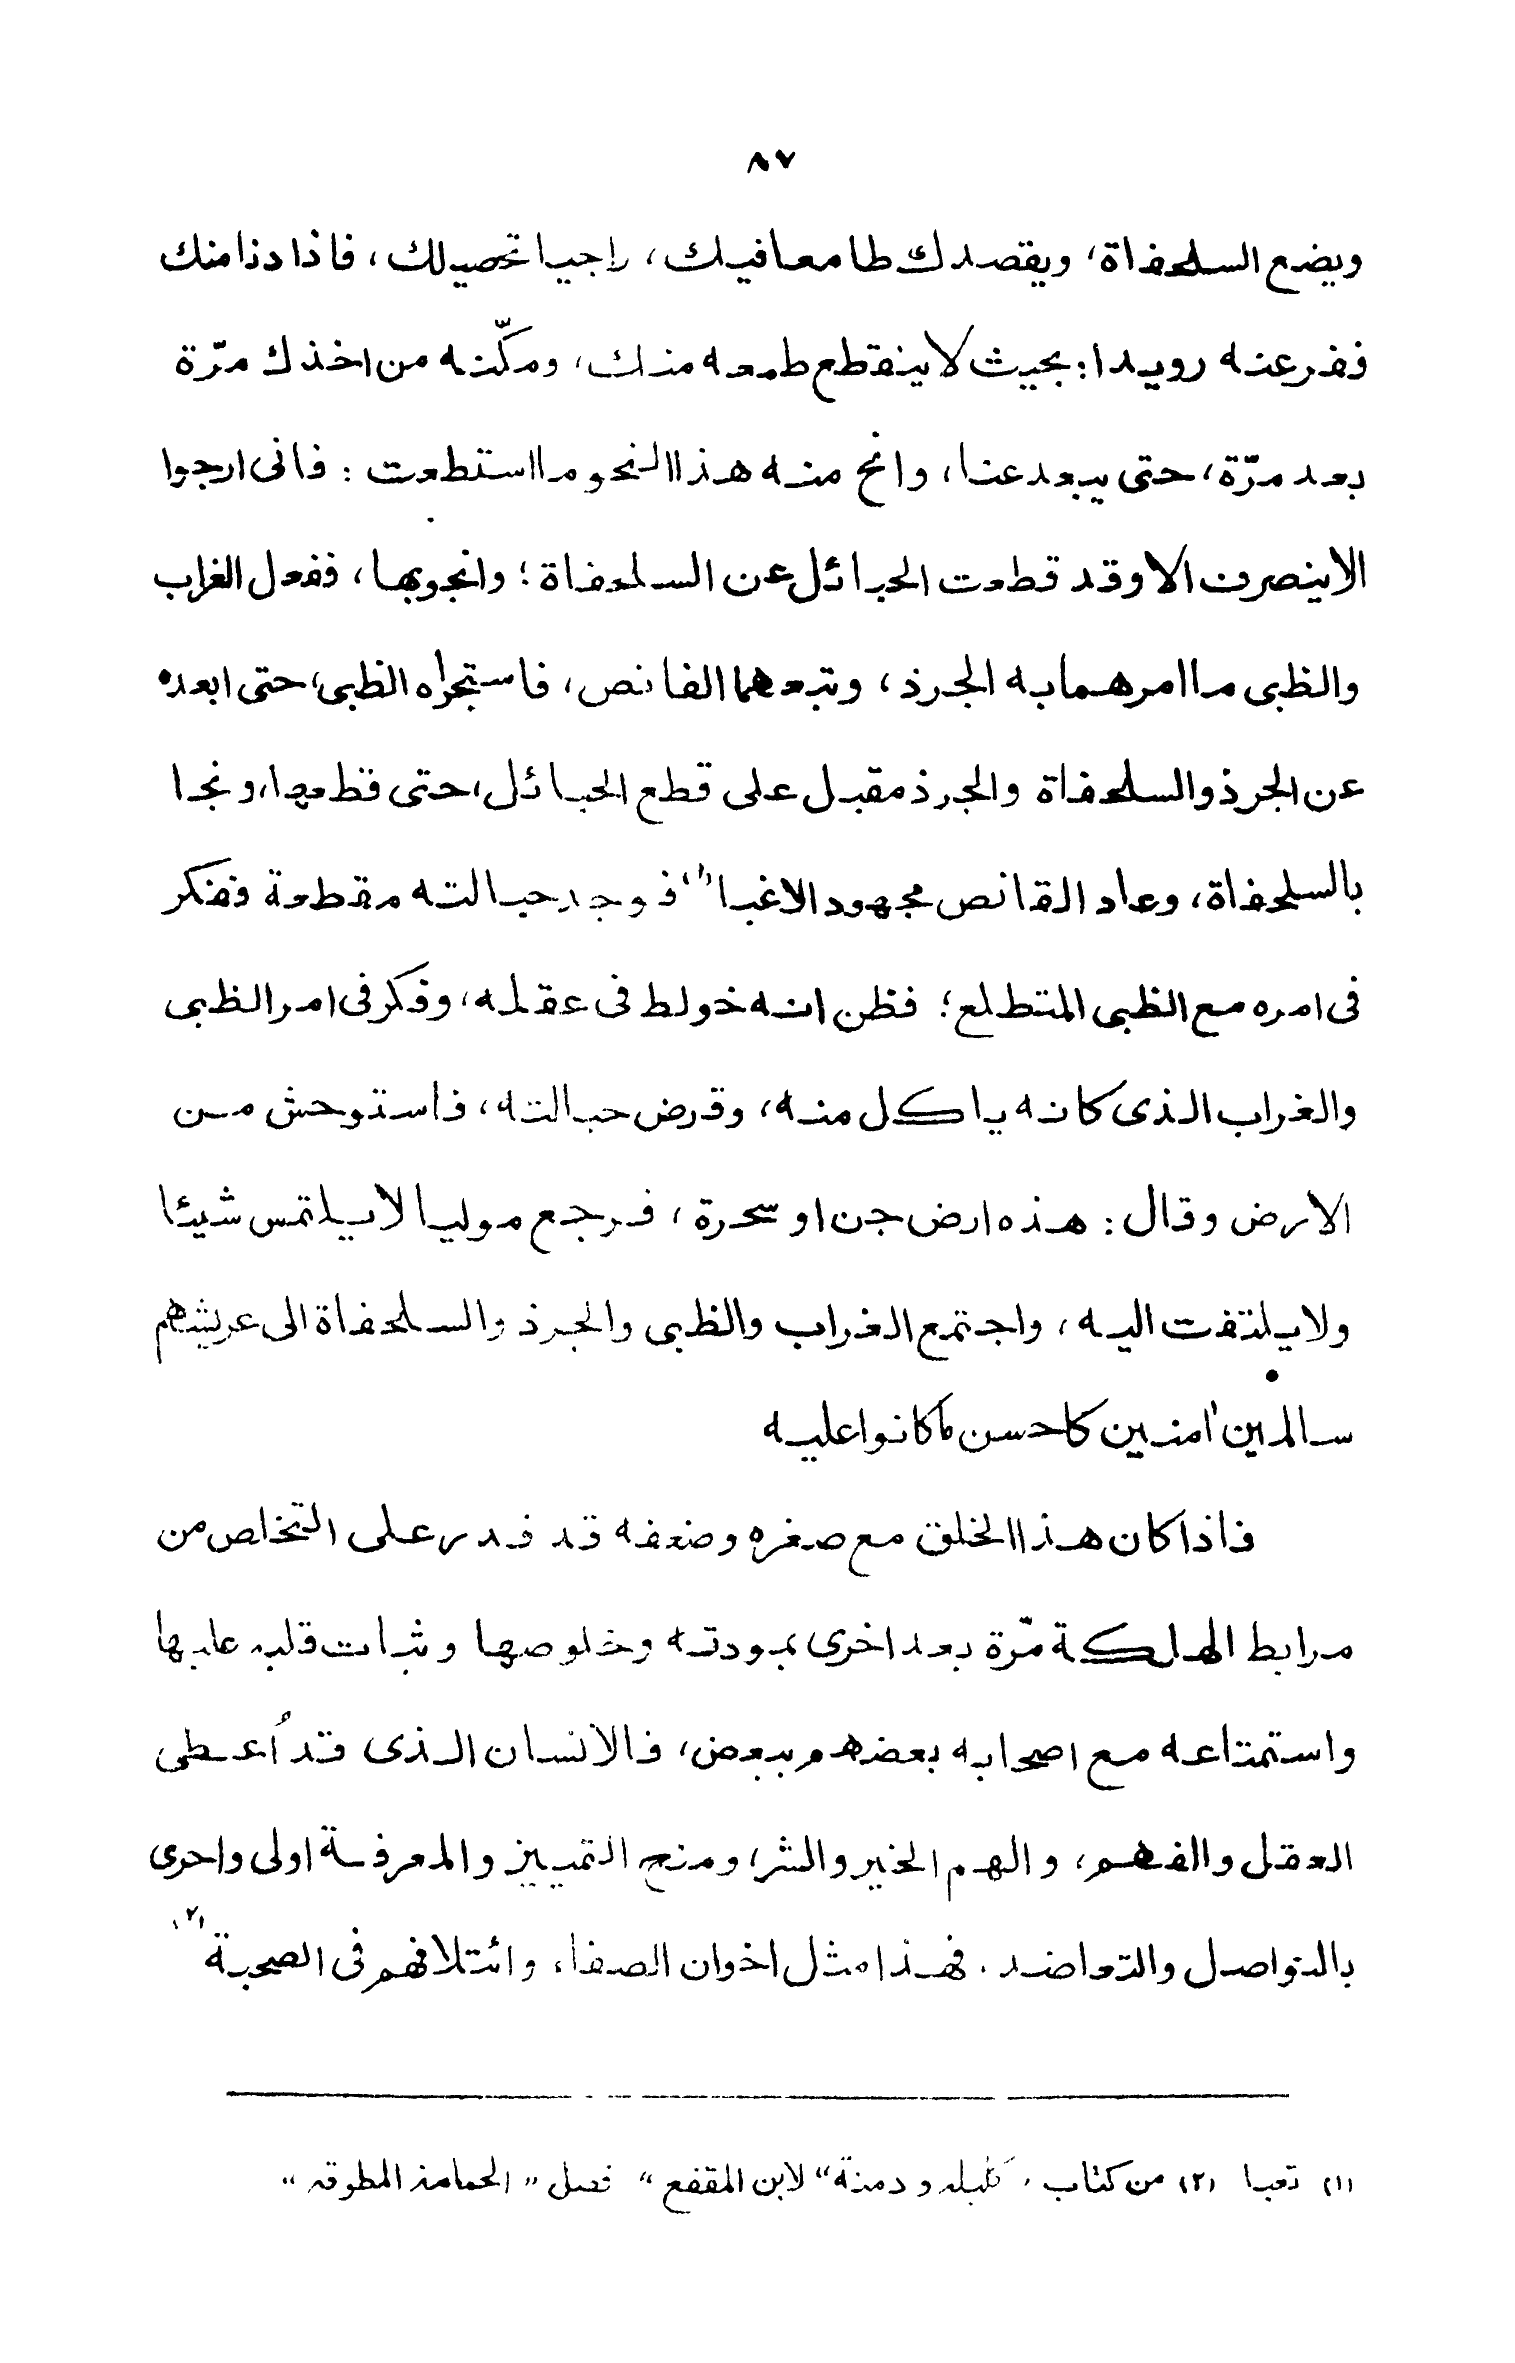 ٨٧
ويضع السلحفاة، ويقصدك طامعا فيك، راجيا تحصيلك، فاذا دنا منك
ففر عنه رويدا: بحيث لا ينقطع طمعه منك، ومكّنه من اخذك مرّة
بعد مرّة، حتى يبعد عنا، وانح منه هذا النحو ما استطعت: فانى ارجوا
الا ينصرف الا وقد قطعت الحبائل عن السلحفاة؛ وانجو بها، ففعل الغراب
والظبى ما امرهما به الجرذ، وتبعهما القانص، فاستجراه الظبى، حتى ابعده
عن الجرذ والسلحفاة والجرذ مقبل على قطع الحبائل، حتى قطعها، ونجا
بالسلحفاة، وعاد القانص مجهودا لاغبا (١) فوجد حبالته مقطعة ففكر
فى امره مع الظبى المتطلع؛ فظن انه خولط فى عقله، وفكر فى امر الظبى
والغراب الذى كانه ياكل منه، وقرض حبالته، فاستوحش من
الارض وقال: هذه ارض جن او سحرة، فرجع موليا لا يلتمس شيئا
ولا يلتفت اليه، واجتمع الغراب والظبى والجرذ والسلحفاة الى عريشهم
سالمين اٰمنين كاحسن ما كانوا عليه
فاذا كان هذا الخلق مع صغره وضعفه قد قدر على التخلص من
مرابط الهلكة مرّة بعد اخرى بمودته وخلوصها وثبات قلبه عليها
واستمتاعه مع اصحابه بعضهم ببعض، فالانسان الذى قد اُعطى
العقل والفهم، والهم الخير والشر، ومنح التمييز والمعرفة اولى واحرى
بالتواصل والتعاضد. فهذا مثل اخوان الصفاء، وائتلافهم فى الصحبة (٢)
(١) تعبا (٢) من كتاب "كليله و دمنة" لابن المقفع" فصل "الحمامة المطوقه"